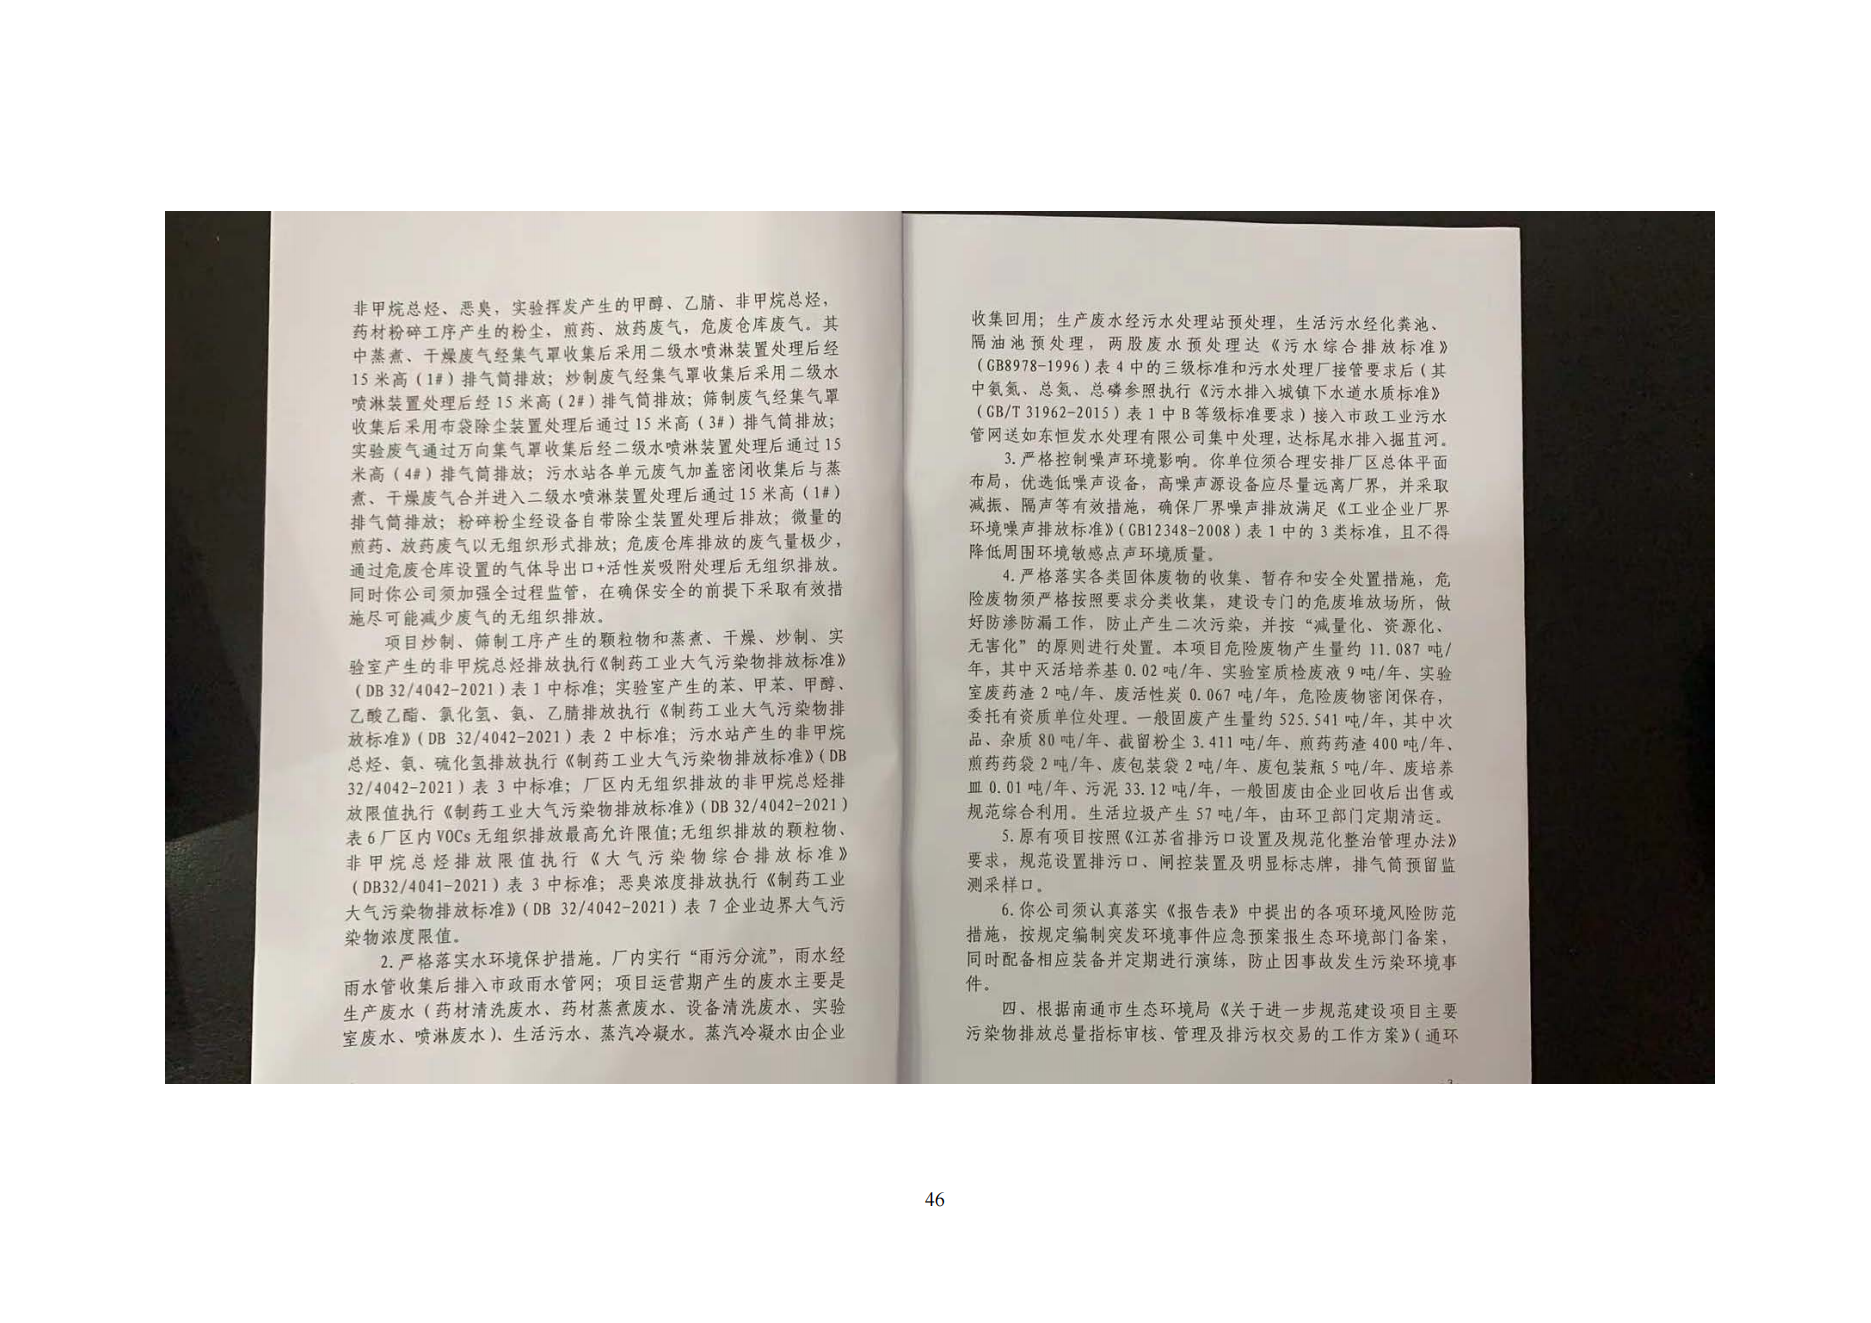 非甲烷总烃、恶臭，实验挥发产生的甲醇、乙腈、非甲烷总烃，
药材粉碎工序产生的粉尘，煎药、放药废气，危废仓库废气。其
中蒸煮、干燥废气经集气罩收集后采用二级水喷淋装置处理后经
15 米高（1#）排气筒排放；炒制废气经集气罩收集后采用二级水
喷淋装置处理后经 15 米高（2#）排气筒排放；筛制废气经集气罩
收集后采用布袋除尘装置处理后通过 15 米高（3#）排气筒排放；
实验废气通过万向集气罩收集后经二级水喷淋装置处理后通过 15
米高（4#）排气筒排放；污水站各单元废气加盖密闭收集后与蒸
煮、干燥废气合并进入二级水喷淋装置处理后通过 15 米高（1#）
排气筒排放；粉碎粉尘经设备自带除尘装置处理后排放；微量的
煎药、放药废气以无组织形式排放；危废仓库排放的废气量极少，
通过危废仓库设置的气体导出口+活性炭吸附处理后无组织排放。
同时你公司须加强全过程监管，在确保安全的前提下采取有效措
施尽可能减少废气的无组织排放。
项目炒制、筛制工序产生的颗粒物和蒸煮、干燥、炒制、实
验室产生的非甲烷总烃排放执行《制药工业大气污染物排放标准》
（DB 32/4042-2021）表 1 中标准；实验室产生的苯、甲苯、甲醇、
乙酸乙酯、氯化氢、氨、乙腈排放执行《制药工业大气污染物排
放标准》（DB 32/4042-2021）表 2 中标准；污水站产生的非甲烷
总烃、氨、硫化氢排放执行《制药工业大气污染物排放标准》（DB
32/4042-2021）表 3 中标准；厂区内无组织排放的非甲烷总烃排
放限值执行《制药工业大气污染物排放标准》（DB 32/4042-2021）
表 6 厂区内 VOCs 无组织排放最高允许限值；无组织排放的颗粒物、
非甲烷总烃排放限值执行《大气污染物综合排放标准》
（DB32/4041-2021）表 3 中标准；恶臭浓度排放执行《制药工业
大气污染物排放标准》（DB 32/4042-2021）表 7 企业边界大气污
染物浓度限值。
2. 严格落实水环境保护措施。厂内实行“雨污分流”，雨水经
雨水管收集后排入市政雨水管网；项目运营期产生的废水主要是
生产废水（药材清洗废水、药材蒸煮废水、设备清洗废水、实验
室废水、喷淋废水）、生活污水、蒸汽冷凝水。蒸汽冷凝水由企业
收集回用；生产废水经污水处理站预处理，生活污水经化粪池、
隔油池预处理，两股废水预处理达《污水综合排放标准》
（GB8978-1996）表 4 中的三级标准和污水处理厂接管要求后（其
中氨氮、总氮、总磷参照执行《污水排入城镇下水道水质标准》
（GB/T 31962-2015）表 1 中 B 等级标准要求）接入市政工业污水
管网送如东恒发水处理有限公司集中处理，达标尾水排入掘苴河。
3. 严格控制噪声环境影响。你单位须合理安排厂区总体平面
布局，优选低噪声设备，高噪声源设备应尽量远离厂界，并采取
减振、隔声等有效措施，确保厂界噪声排放满足《工业企业厂界
环境噪声排放标准》（GB12348-2008）表 1 中的 3 类标准，且不得
降低周围环境敏感点声环境质量。
4. 严格落实各类固体废物的收集、暂存和安全处置措施，危
险废物须严格按照要求分类收集，建设专门的危废堆放场所，做
好防渗防漏工作，防止产生二次污染，并按“减量化、资源化、
无害化”的原则进行处置。本项目危险废物产生量约 11.087 吨/
年，其中灭活培养基 0.02 吨/年、实验室质检废液 9 吨/年、实验
室废药渣 2 吨/年、废活性炭 0.067 吨/年，危险废物密闭保存，
委托有资质单位处理。一般固废产生量约 525.541 吨/年，其中次
品、杂质 80 吨/年、截留粉尘 3.411 吨/年、煎药药渣 400 吨/年、
煎药药袋 2 吨/年、废包装袋 2 吨/年、废包装瓶 5 吨/年、废培养
皿 0.01 吨/年、污泥 33.12 吨/年，一般固废由企业回收后出售或
规范综合利用。生活垃圾产生 57 吨/年，由环卫部门定期清运。
5. 原有项目按照《江苏省排污口设置及规范化整治管理办法》
要求，规范设置排污口、闸控装置及明显标志牌，排气筒预留监
测采样口。
6. 你公司须认真落实《报告表》中提出的各项环境风险防范
措施，按规定编制突发环境事件应急预案报生态环境部门备案，
同时配备相应装备并定期进行演练，防止因事故发生污染环境事
件。
四、根据南通市生态环境局《关于进一步规范建设项目主要
污染物排放总量指标审核、管理及排污权交易的工作方案》（通环
46